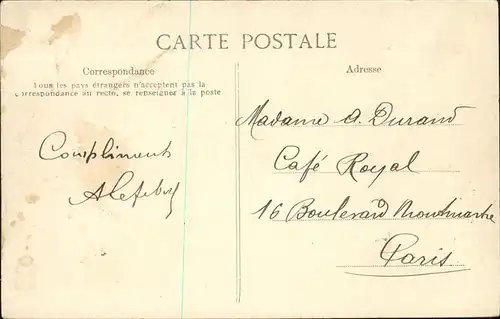 CARTE POSTALE
Correspondance
Tous les pays étrangers n'acceptent pas la
correspondance au recto, se renseigner à la poste
Adresse
Compliments
A Lefebvre
Madame A. Durand
Café Royal
16 Boulevard Montmartre
Paris